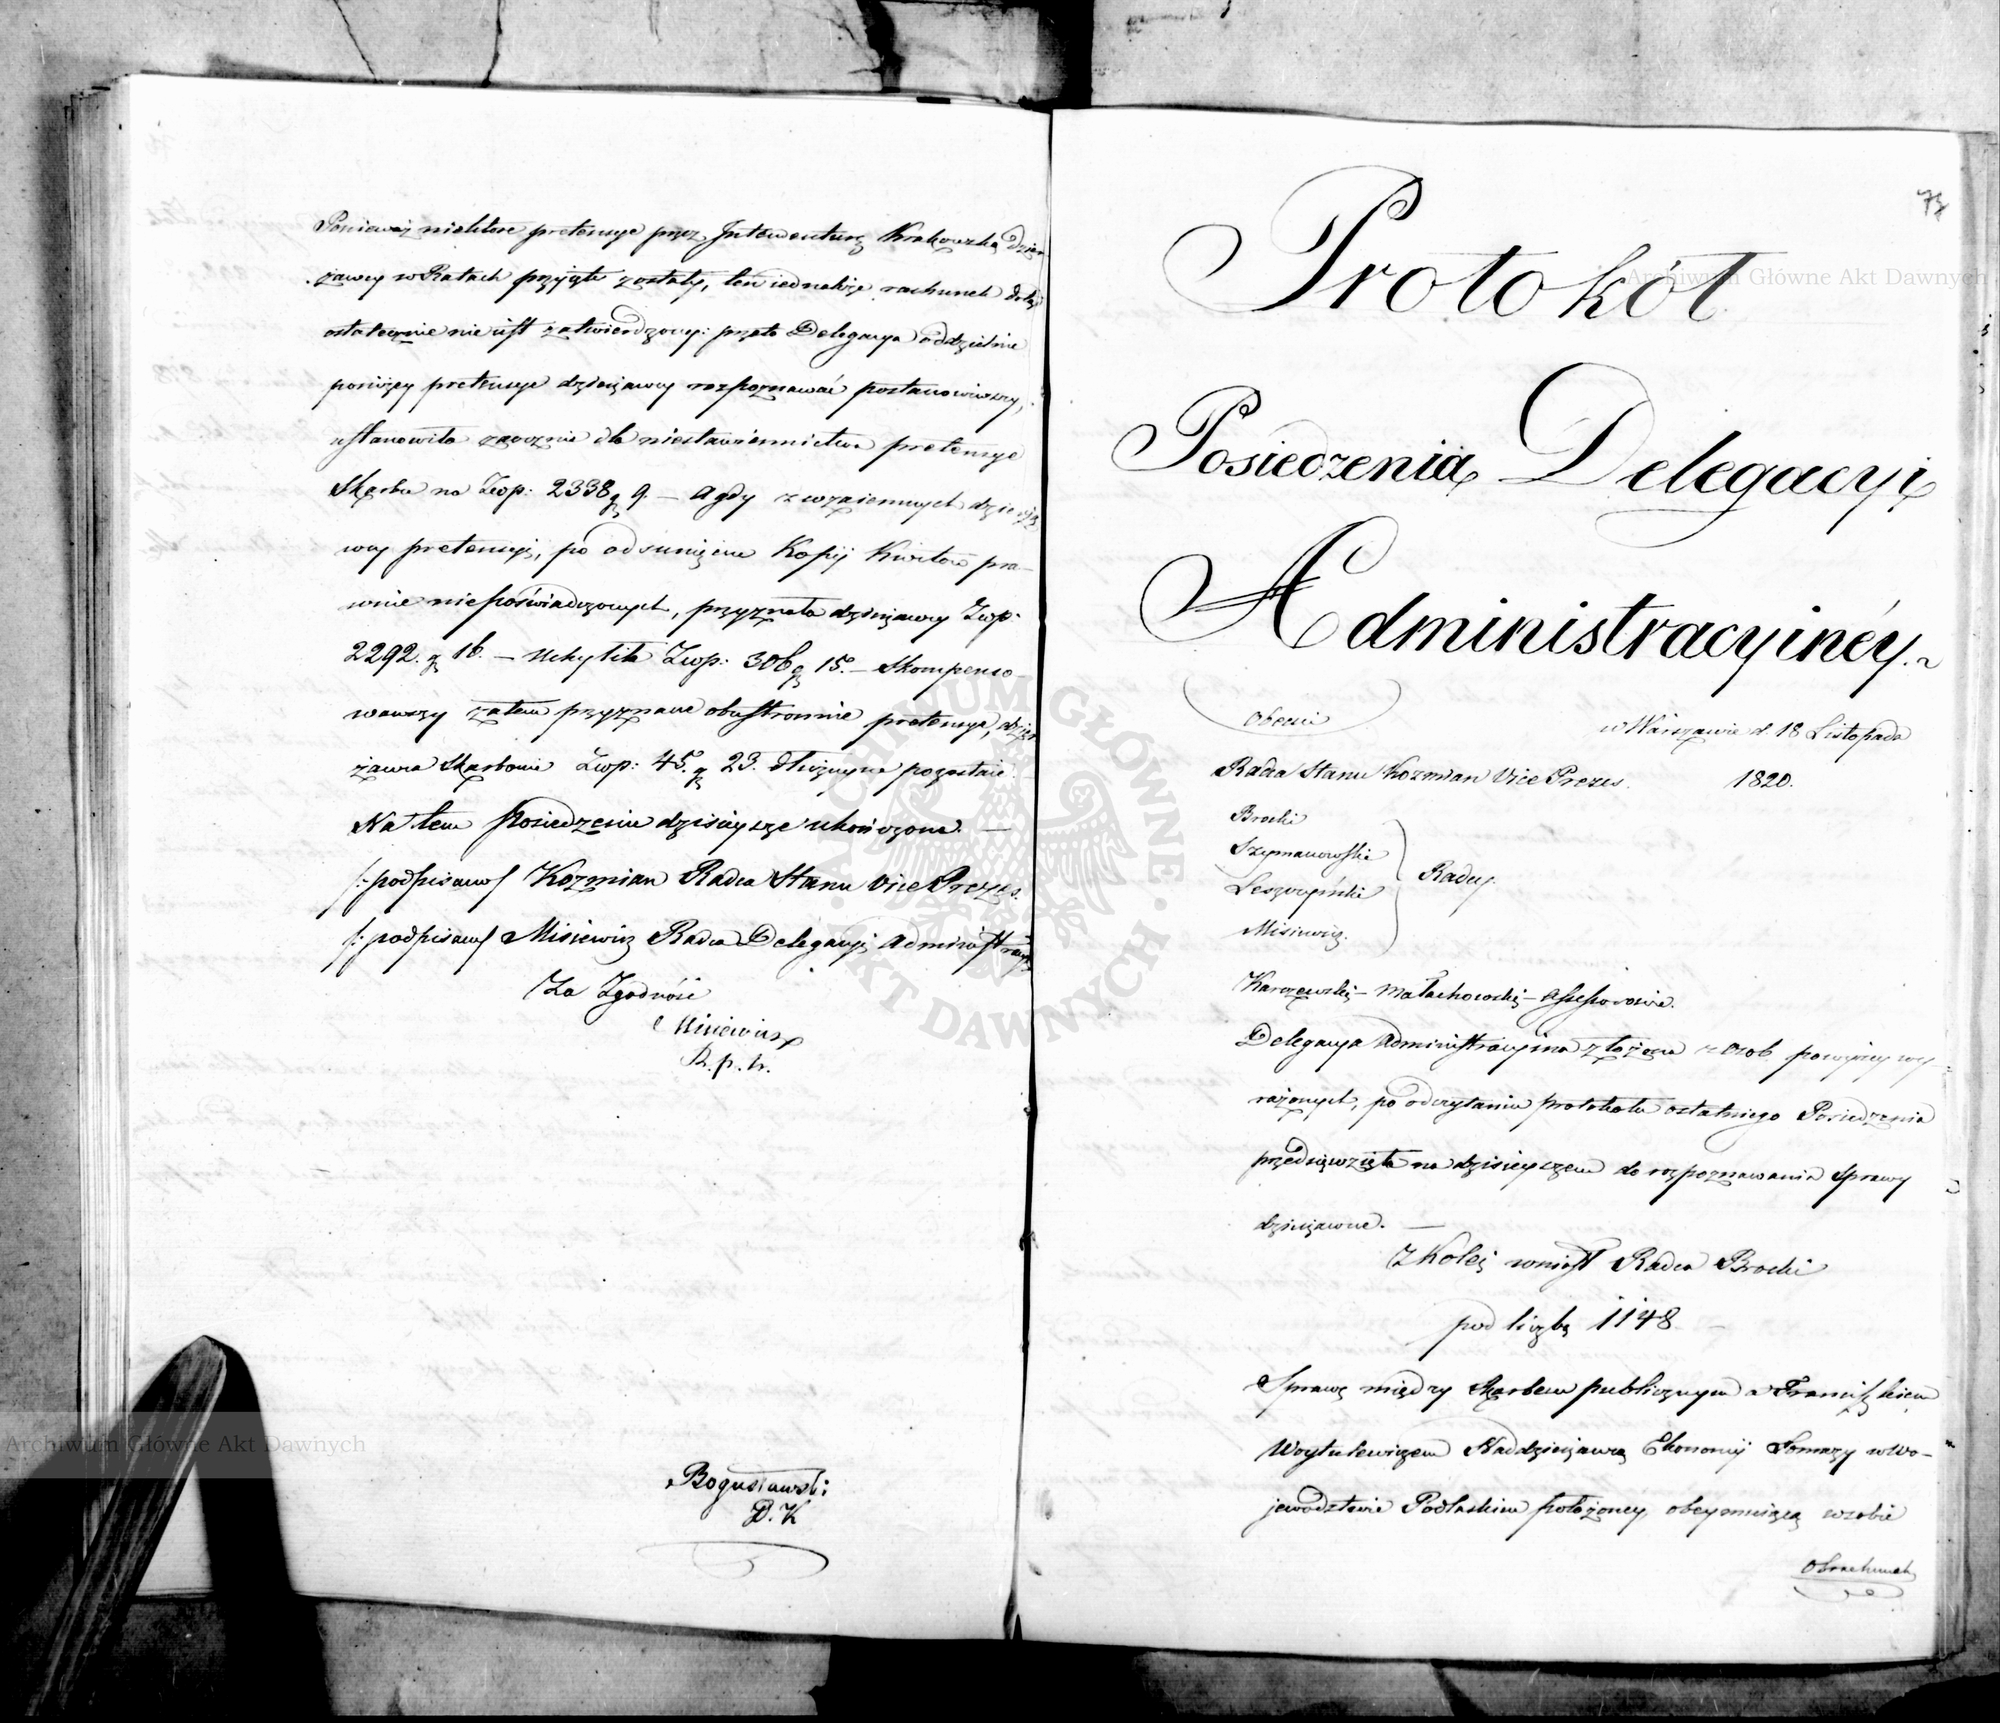 Ponieważ niektóre pretensye przez Intendenturę Krakowską Dzier
żawcy w Ratach przyięte zostały, ten iednakże rachunek dotąd
ostatecznie nie iest zatwierdzony: przeto Delegacya oddzielnie
poniższy pretensye dzierżawcy rozpoznawać postanowiwszy,
ustanowiła zaocznie dla niestawiennictwa pretensye
Skarbu na Złop: 2338 gr 9. — a gdy z wzaiemnych dzierża
wcy pretensyi, po odsunięciu Kopij Kwitów pra-
wnie niepoświadczonych, przyznała dzierżawcy Złop:
2292. gr 16. — uchyliła Złop: 306 gr 15. — Skompenso-
wawszy zatem przyznane obustronnie pretensye, dzier
żawca Skarbowi Złop: 45. gr 23. dłużnym pozostaie.
Na tem Posiedzenie dzisieysze ukończone. —
/: podpisany/ Kozmian Radca Stanu Vice Prezes.
/: podpisany/ Misiewicz Radca Delegacyi Administracy
Za Zgodność
Misiewicz
R. p. tr.
Bogusławski
D. K
73
Protokół
Posiedzenia Delegacyi
Administracyinéy.
Obecni
w Warszawie d. 18 Listopada
1820.
Radca Stanu Kozmian Vice Prezes.
Brocki
Szymanowski
Leszczyński
Misiewicz.
Radcy.
Karczewski — Małachowski — Assessorowie.
Delegacya Administracyina złożona z osob powyżey wy-
rażonych, po odczytaniu protokołu ostatniego Posiedzenia
przedsięwzięła na dzisieyszem do rozpoznawania Sprawy
dzierżawne. —
Z Kolei wniosł Radca Brocki
pod liczbą 1148 —
Sprawę między Skarbem publicznym a Franciszkiem
Woytulewiczem Naddzierżawcą Ekonomij Łomazy w Wo-
jewództwie Podlaskim położoney, obeymuiącą w sobie
Obrachunek
Archiwum Główne Akt Dawnych
Archiwum Główne Akt Dawnych
ARCHIWUM GŁÓWNE AKT DAWNYCH